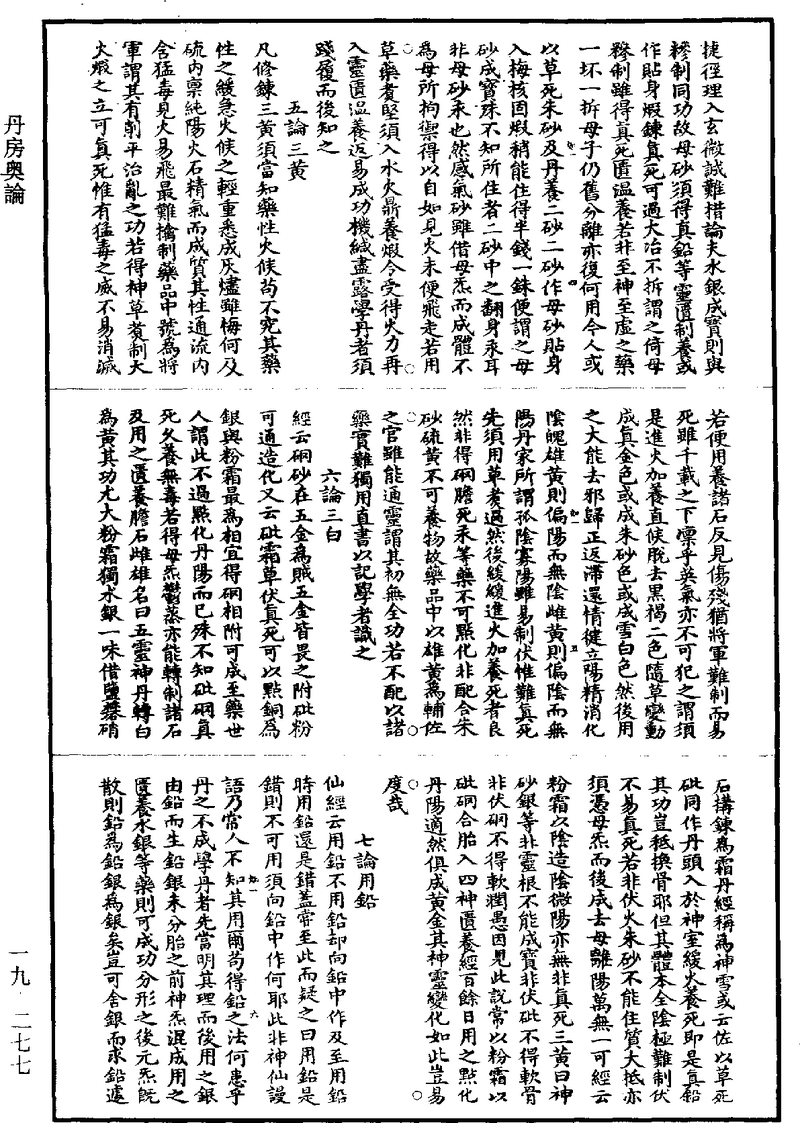 捷徑理入玄微誠難措論夫水銀成寶則與
糝制同功故母砂須得真鉛等靈匱制養或
作貼身煅鍊真死可過大冶不折謂之倚母
糝制雖得真死匱溫養若非至神至虛之藥
一坏一拆母子仍舊分離亦復何用今人或
以草死朱砂及丹養二砂二砂作母砂貼身
入梅核固煅稍能住得半錢一銖便謂之母
砂成寶殊不知所住者二砂中之翻身汞耳
非母砂汞也然感氣砂雖借母炁而成體不
為母所拘禦得以自如見火未便飛走若用
草藥煮堅須入水火鼎養煅令受得火力再
入靈匱溫養返易成功機緘盡露學丹者須
踐履而後知之
五論三黃
凡修鍊三黃須當知藥性火候苟不究其藥
性之緩急火候之輕重悉成灰燼雖悔何及
硫內稟純陽火石精氣而成質其性通流內
含猛毒見火易飛最難擒制藥品中號為將
軍謂其有削平治亂之功若得神草煮制大
火煅之立可真死惟有猛毒之威不易消滅
若便用養諸石反見傷殘猶將軍難制而易
死雖千載之下凜乎英氣亦不可犯之謂須
是進火加養直候脫去黑褐二色隨草變動
成真金色或成朱砂色或成雪白色然後用
之大能去邪歸正返滯還情徤立陽精消化
陰魄雄黃則偏陽而無陰雌黃則偏陰而無
陽丹家所謂孤陰寡陽雖易制伏惟難真死
先須用草煮過然後緩緩進火加養死者良
然非得硇膽死汞等藥不可點化非配合朱
砂硫黃不可養物故藥品中以雄黃為輔佐
之官雖能通靈謂其初無全功若不配以諸
藥實難獨用直書以記學者識之
六論三白
經云硇砂在五金為賊五金皆畏之附砒粉
可通造化又云砒霜草伏真死可以點銅為
銀與粉霜最為相宜得硇相附可成至藥世
人謂此不過點化丹陽而已殊不知砒硇真
死久養無毒若得母炁鬱蒸亦能轉制諸石
及用之匱養膽石雌雄名曰五靈神丹轉白
為黃其功尤大粉霜獨水銀一味借鹽礬硝
石搆鍊為霜丹經稱為神雪或云佐以草死
砒同作丹頭入於神室緩火養死即是真鉛
其功豈秪換骨耶但其體本全陰極難制伏
不易真死若非伏火朱砂不能住質大抵亦
須憑母炁而後成去母離陽萬無一可經云
粉霜以陰造陰微陽亦無非真死三黃曰神
砂銀等非靈根不能成寶非伏砒不得軟骨
非伏硇不得軟潤愚因見此說常以粉霜以
砒硇合胎入四神匱養經百餘日用之點化
丹陽適然俱成黃金其神靈變化如此豈易
度哉
七論用鉛
仙經云用鉛不用鉛却向鉛中作及至用鉛
時用鉛還是錯蓋嘗至此而疑之曰用鉛是
錯則不可用須向鉛中作何耶此非神仙謾
語乃常人不知其用爾苟得鉛之法何患乎
丹之不成學丹者先當明其理而後用之銀
由鉛而生鉛銀未分胎之前神炁混成用之
匱養水銀等藥則可成功分形之後元炁既
散則鉛為鉛銀為銀矣豈可舍銀而求鉛遽
丹房奧論
一九·二七七